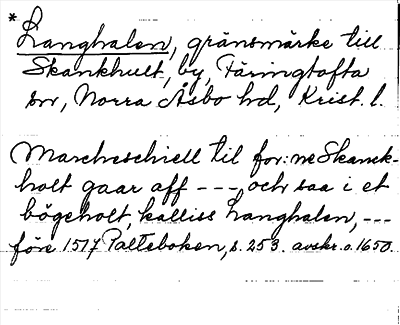 * Langhalen, gränsmärke till
Skankhult, by, Färingtofta
sn, Norra Åsbo hd, Krist. l.
Marcheschiell til for:ne Skanck-
holt gaar aff --- och saa i et
bögeholt, kalliss Langhalen, ---
före 1517 Palteboken, s. 253. avskr. o. 1650.